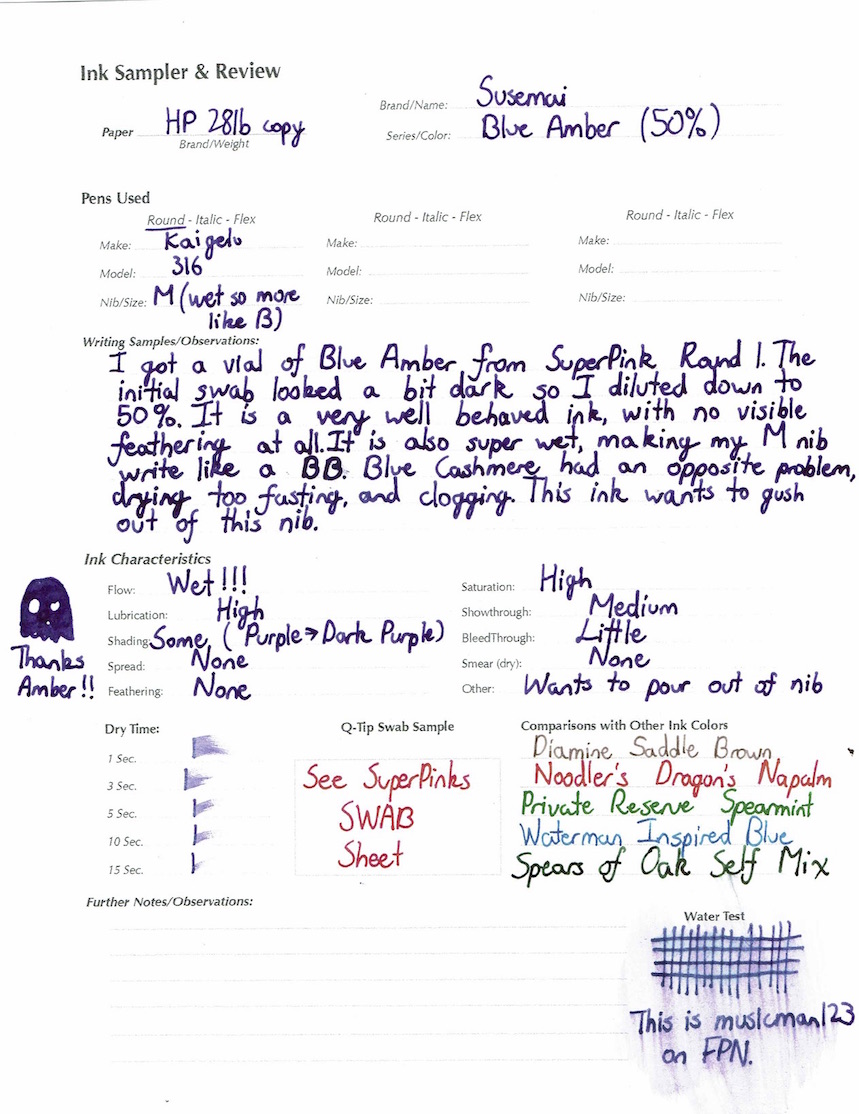 Ink Sampler & Review
Brand/Name: Susemai
Paper HP 28lb copy
Brand/Weight
Series/Color: Blue Amber (50%)
Pens Used
Round - Italic - Flex
Make: Kaigelu
Model: 316
Nib/Size: M (wet so more
like B)
Round - Italic - Flex
Make:
Model:
Nib/Size:
Round - Italic - Flex
Make:
Model:
Nib/Size:
Writing Samples/Observations:
I got a vial of Blue Amber from SuperPink Round 1. The
initial swab looked a bit dark so I diluted down to
50%. It is a very well behaved ink, with no visible
feathering at all. It is also super wet, making my M nib
write like a BB. Blue Cashmere had an opposite problem,
drying too fasting, and clogging. This ink wants to gush
out of this nib.
Ink Characteristics
Flow: Wet!!!
Lubrication: High
Shading: Some (Purple→Dark Purple)
Spread: None
Feathering: None
Thanks
Amber!!
Saturation: High
Showthrough: Medium
BleedThrough: Little
Smear (dry): None
Other: Wants to pour out of nib
Dry Time:
1 Sec.
3 Sec.
5 Sec.
10 Sec.
15 Sec.
Q-Tip Swab Sample
See SuperPinks
SWAB
Sheet
Comparisons with Other Ink Colors
Diamine Saddle Brown
Noodler's Dragon's Napalm
Private Reserve Spearmint
Waterman Inspired Blue
Spears of Oak Self Mix
Further Notes/Observations:
Water Test
This is musicman123
on FPN.